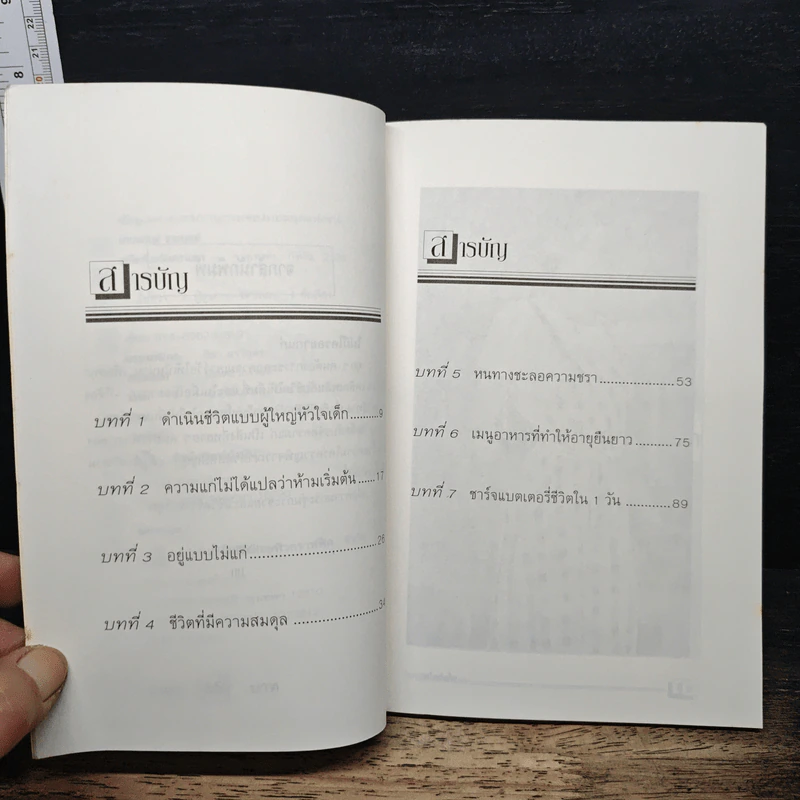 สารบัญ
บทที่ 1 ดำเนินชีวิตแบบผู้ใหญ่หัวใจเด็ก..........9
บทที่ 2 ความแก่ไม่ได้แปลว่าห้ามเริ่มต้น......17
บทที่ 3 อยู่แบบไม่แก่..............................26
บทที่ 4 ชีวิตที่มีความสมดุล ....................34
สารบัญ
บทที่ 5 หนทางชะลอความชรา....................53
บทที่ 6 เมนูอาหารที่ทำให้อายุยืนยาว ..........75
บทที่ 7 ชาร์จแบตเตอรี่ชีวิตใน 1 วัน ............89